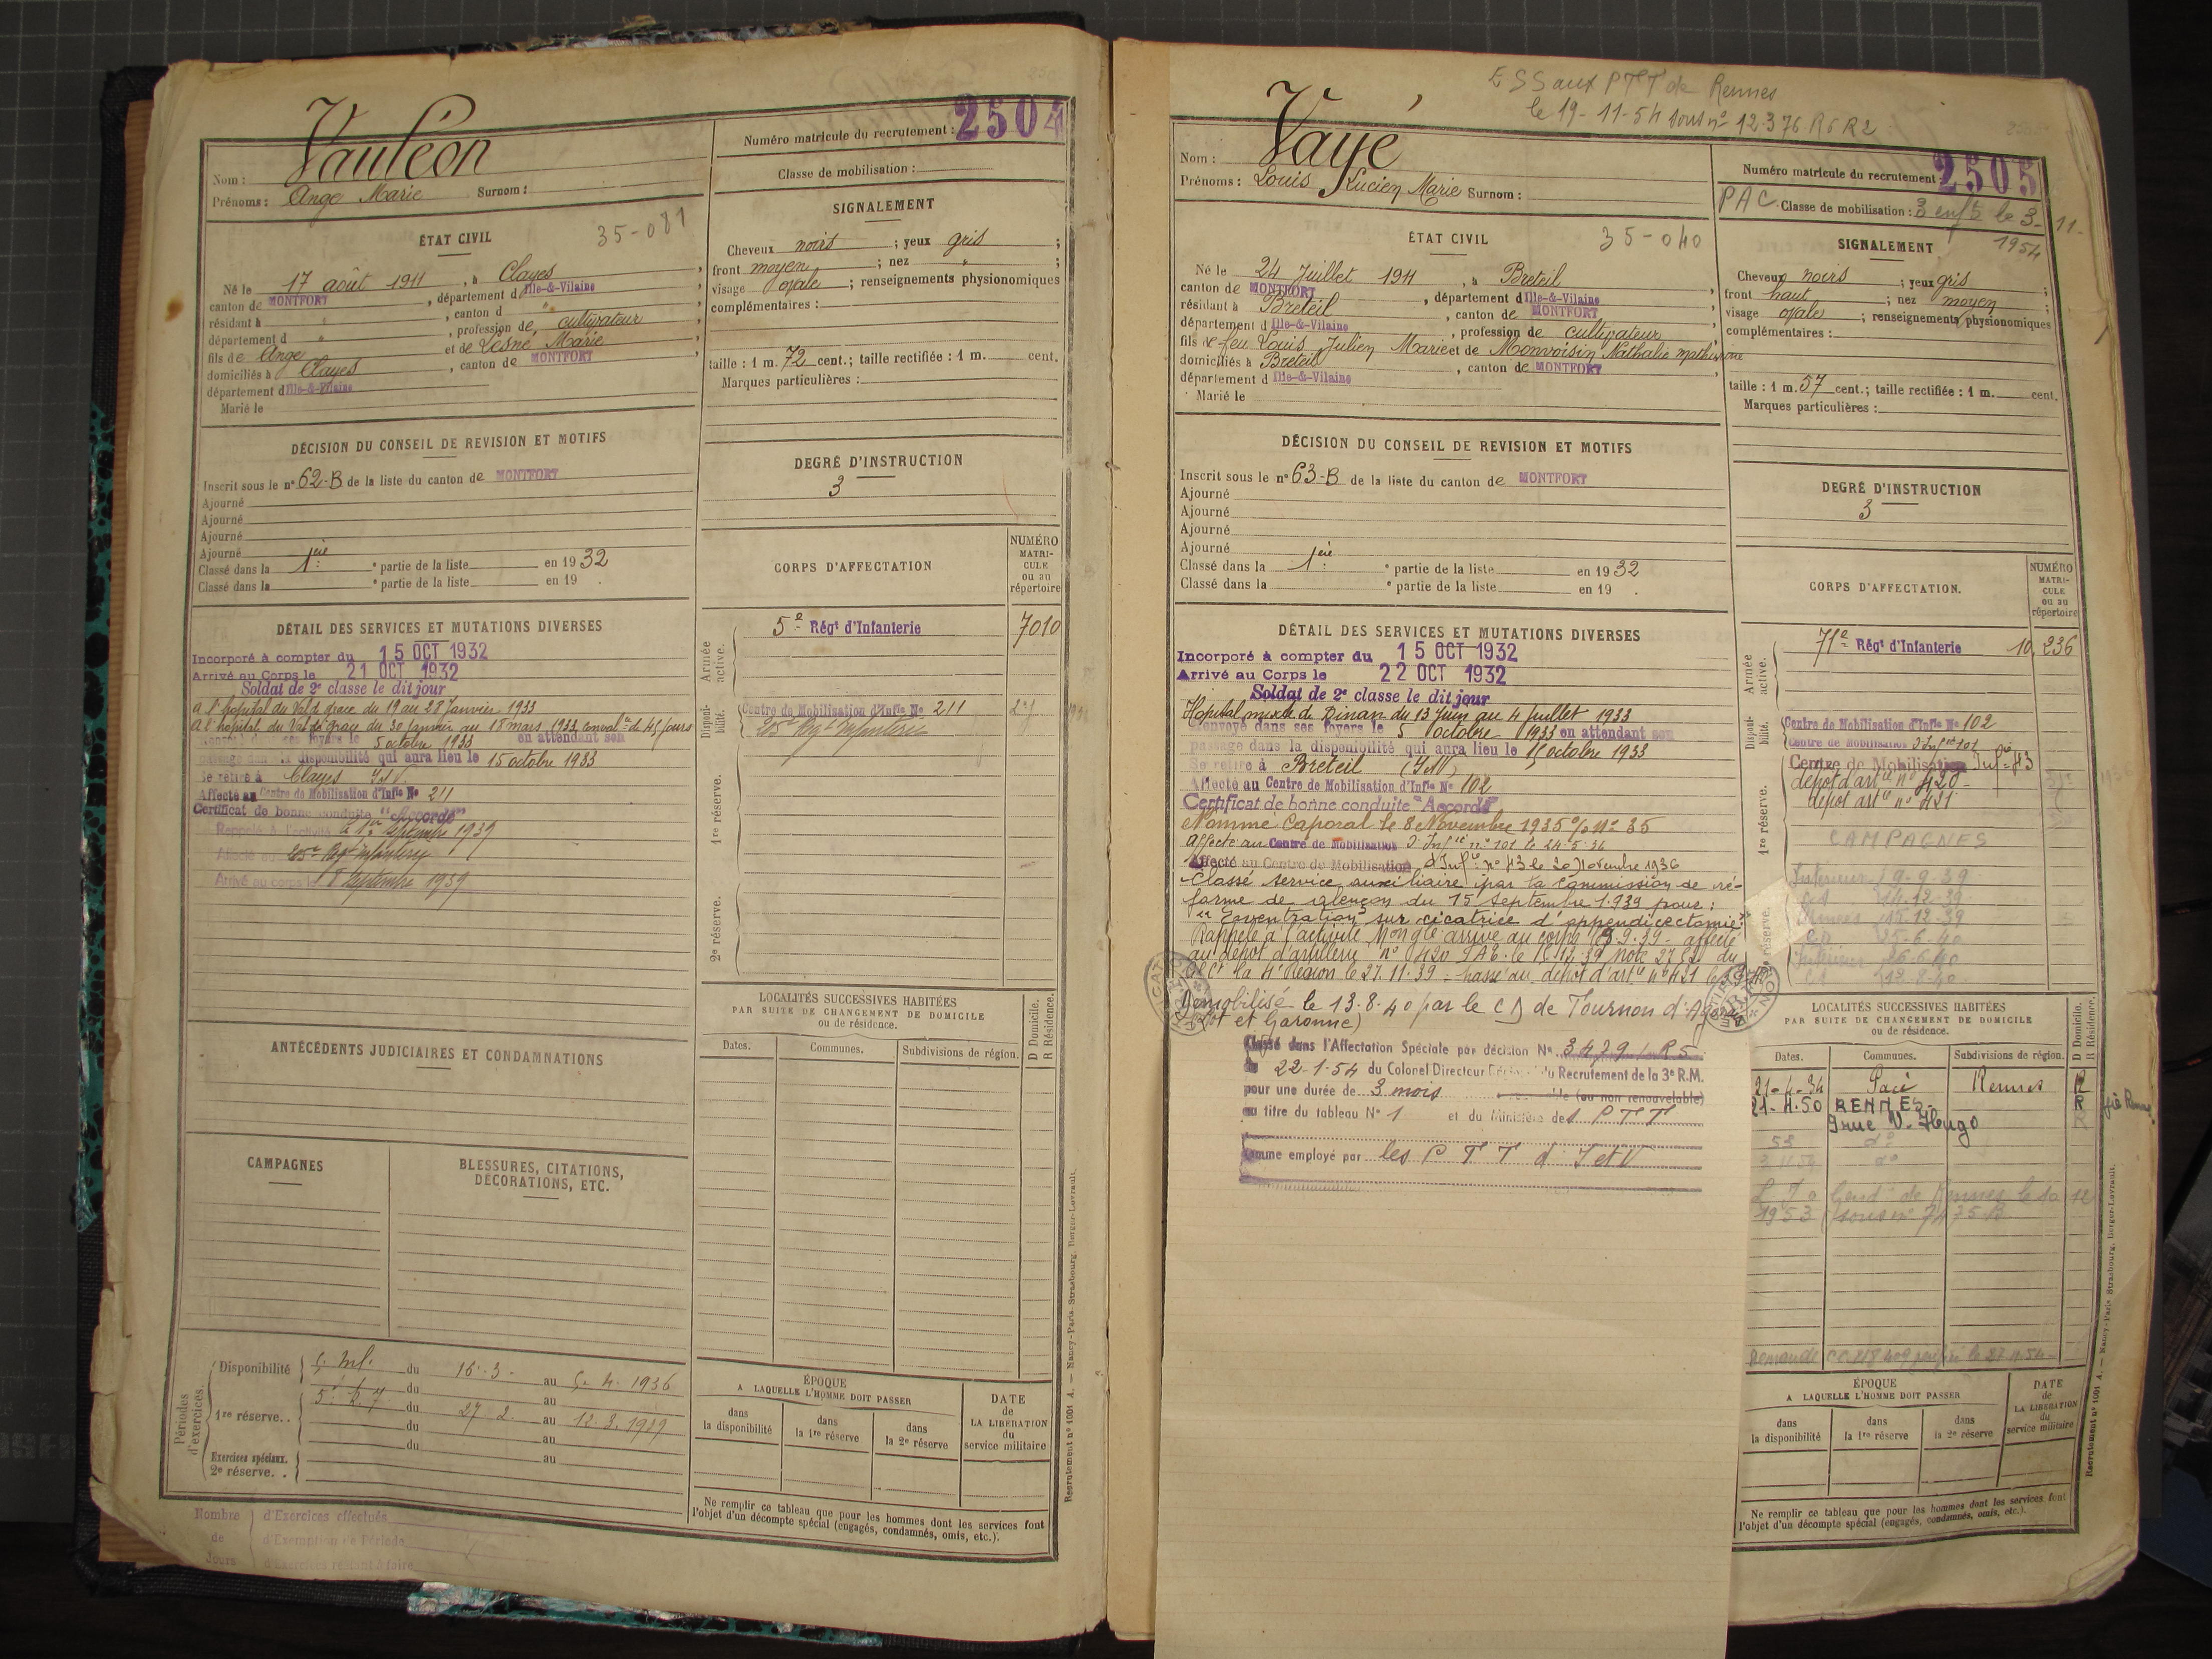 2504
Vauléon
Numéro matricule du recrutement :
Nom :
Classe de mobilisation :
Prénoms : Ange Marie Surnom :
SIGNALEMENT
ÉTAT CIVIL 35-081
Cheveux noirs ; yeux gris ;
front moyen ; nez " ;
visage ovale ; renseignements physionomiques
complémentaires :
taille : 1 m. 72 cent. ; taille rectifiée : 1 m. cent.
Marques particulières :
Né le 17 août 1911, à Clayes,
canton de MONTFORT, département d Ille-&-Vilaine
résidant à ", canton d "
département d ", profession de cultivateur
fils de Ange et de Lesné Marie
domiciliés à Clayes, canton de MONTFORT
département d Ille-&-Vilaine
Marié le
DÉCISION DU CONSEIL DE REVISION ET MOTIFS
Inscrit sous le n° 62-B de la liste du canton de MONTFORT
Ajourné
Ajourné
Ajourné
Ajourné
Classé dans la 1ère partie de la liste en 1932
Classé dans la partie de la liste en 19 .
DEGRÉ D'INSTRUCTION
3
CORPS D'AFFECTATION
NUMÉRO MATRI-CULE ou au répertoire
Armée active.
5e Régt d'Infanterie 7010
Disponibilité.
Centre de Mobilisation d'Infie No 211
205e Regt Infanterie
1re réserve.
2e réserve.
DÉTAIL DES SERVICES ET MUTATIONS DIVERSES
Incorporé à compter du 15 OCT 1932
Arrivé au Corps le 21 OCT 1932
Soldat de 2e classe le dit jour
a l'hopital du Val de grace du 19 au 28 Janvier 1933
a l'hopital du Val de Grace du 30 Janvier au 18 mars 1933, conval ce de 45 jours
ses foyers le 5 octobre 1933 en attendant son
passage dans la disponibilité qui aura lieu le 15 octobre 1933
Se retire à Clayes I et V.
Affecté au Centre de Mobilisation d'Infie No 211
Certificat de bonne conduite "Accordé"
Rappelé à l'activité le 1er Septembre 1939
Affecté au 205e Regt Infanterie
Arrivé au corps le 8 Septembre 1939
LOCALITÉS SUCCESSIVES HABITÉES
PAR SUITE DE CHANGEMENT DE DOMICILE
ou de résidence.
Dates. Communes. Subdivisions de région. D Domicile. R Résidence.
ANTÉCÉDENTS JUDICIAIRES ET CONDAMNATIONS
CAMPAGNES
BLESSURES, CITATIONS,
DÉCORATIONS, ETC.
Périodes d'exercices.
Disponibilité du 16-3 au 5-4-1936
1re réserve. . du au
du 27-2 au 12-3-1939
du au
Exercices spéciaux. du au
2e réserve. .
ÉPOQUE
A LAQUELLE L'HOMME DOIT PASSER
dans la disponibilité
dans la 1re réserve
dans la 2e réserve
DATE de LA LIBÉRATION du service militaire
Ne remplir ce tableau que pour les hommes dont les services font
l'objet d'un décompte spécial (engagés, condamnés, omis, etc.).
Nombre de Jours
d'Exercices effectués
d'Exemption de Période
d'Exercices restant à faire
Recrutement n° 1001 A. — Nancy-Paris-Strasbourg, Berger-Levrault.
ESS aux PTT de Rennes
le 19-11-54 sous n° 12376 R6 R2
Vayé
Nom :
Numéro matricule du recrutement : 2505
Prénoms : Louis Lucien Marie Surnom :
PAC Classe de mobilisation : 3 enfts le 3-11-1954
ÉTAT CIVIL 35-040
SIGNALEMENT
Cheveux noirs ; yeux gris ;
front haut ; nez moyen ;
visage ovale ; renseignements physionomiques
complémentaires :
taille : 1 m. 57 cent. ; taille rectifiée : 1 m. cent.
Marques particulières :
Né le 24 Juillet 1911, à Breteil
canton de MONTFORT, département d Ille-&-Vilaine
résidant à Breteil, canton de MONTFORT
département d Ille-&-Vilaine, profession de cultivateur
fils de feu Louis Julien Marie et de Monvoisin Nathalie Mathurine
domiciliés à Breteil, canton de MONTFORT
département d Ille-&-Vilaine
Marié le
DÉCISION DU CONSEIL DE REVISION ET MOTIFS
Inscrit sous le n° 63-B de la liste du canton de MONTFORT
Ajourné
Ajourné
Ajourné
Ajourné
Classé dans la 1ère partie de la liste en 1932
Classé dans la partie de la liste en 19 .
DEGRÉ D'INSTRUCTION
3
CORPS D'AFFECTATION.
NUMÉRO MATRI-CULE ou au répertoire
Armée active.
71e Régt d'Infanterie 10.236
Disponibilité.
Centre de Mobilisation d'Infie No 102
Centre de Mobilisation d'Infie 101
Centre de Mobilisation Infie 43
dépot d'artie n° 420
dépot artie n° 421
1re réserve.
CAMPAGNES
Intérieur 9-9-39
14-12-39
Armées 15-12-39
25-6-40
Intérieur 26-6-40
réserve.
DÉTAIL DES SERVICES ET MUTATIONS DIVERSES
Incorporé à compter du 15 OCT 1932
Arrivé au Corps le 22 OCT 1932
Soldat de 2e classe le dit jour
Hopital mixte de Dinan du 13 Juin au 4 Juillet 1933
Renvoyé dans ses foyers le 5 octobre 1933 en attendant son
passage dans la disponibilité qui aura lieu le 15 octobre 1933
Se retire à Breteil (I et V)
Affecté au Centre de Mobilisation d'Infie No 102
Certificat de bonne conduite "Accordé"
Nommé Caporal le 8 Novembre 1935 O/ N° 35
Affecté au Centre de Mobilisation d'Infie n° 101 le 24-5-36
Affecté au Centre de Mobilisation d'Infie n° 43 le 30 Novembre 1936
Classé service auxiliaire par la Commission de ré-
forme de alençon du 15 septembre 1939 pour :
"Eventration sur cicatrice d'appendicectomie"
Rappelé à l'activité Mon gle arrivé au corps le 9.9.39 - affecté
au dépot d'artillerie n° 420 le 15.12.39 note 2752 du
Gl Ct la 4e Région le 27.11.39 - passé au dépot d'artie n° 421
Démobilisé le 13.8.40 par le CD de Tournon d'Agenais
(Lot et Garonne)
Classé dans l'Affectation Spéciale par décision No 3429 / R5
du 22-1-54 du Colonel Directeur du Recrutement de la 3e R.M.
pour une durée de 3 mois (ou non renouvelable)
au titre du tableau No 1 et du Ministère des PTT
comme employé par les PTT d'I et V
LOCALITÉS SUCCESSIVES HABITÉES
PAR SUITE DE CHANGEMENT DE DOMICILE
ou de résidence.
Dates. Communes. Subdivisions de région. D Domicile. R Résidence.
21-4-34 Pacé Rennes R
21-4.50 RENNES- R
9 rue V. Hugo
53 do
3 11 54 do
Gend ie de Rennes le 10 12
1953 sous n° 7475-B
ÉPOQUE
A LAQUELLE L'HOMME DOIT PASSER
dans la disponibilité
dans la 1re réserve
dans la 2e réserve
DATE de LA LIBÉRATION du service militaire
Ne remplir ce tableau que pour les hommes dont les services font
l'objet d'un décompte spécial (engagés, condamnés, omis, etc.).
Recrutement n° 1001 A. — Nancy-Paris-Strasbourg, Berger-Levrault.